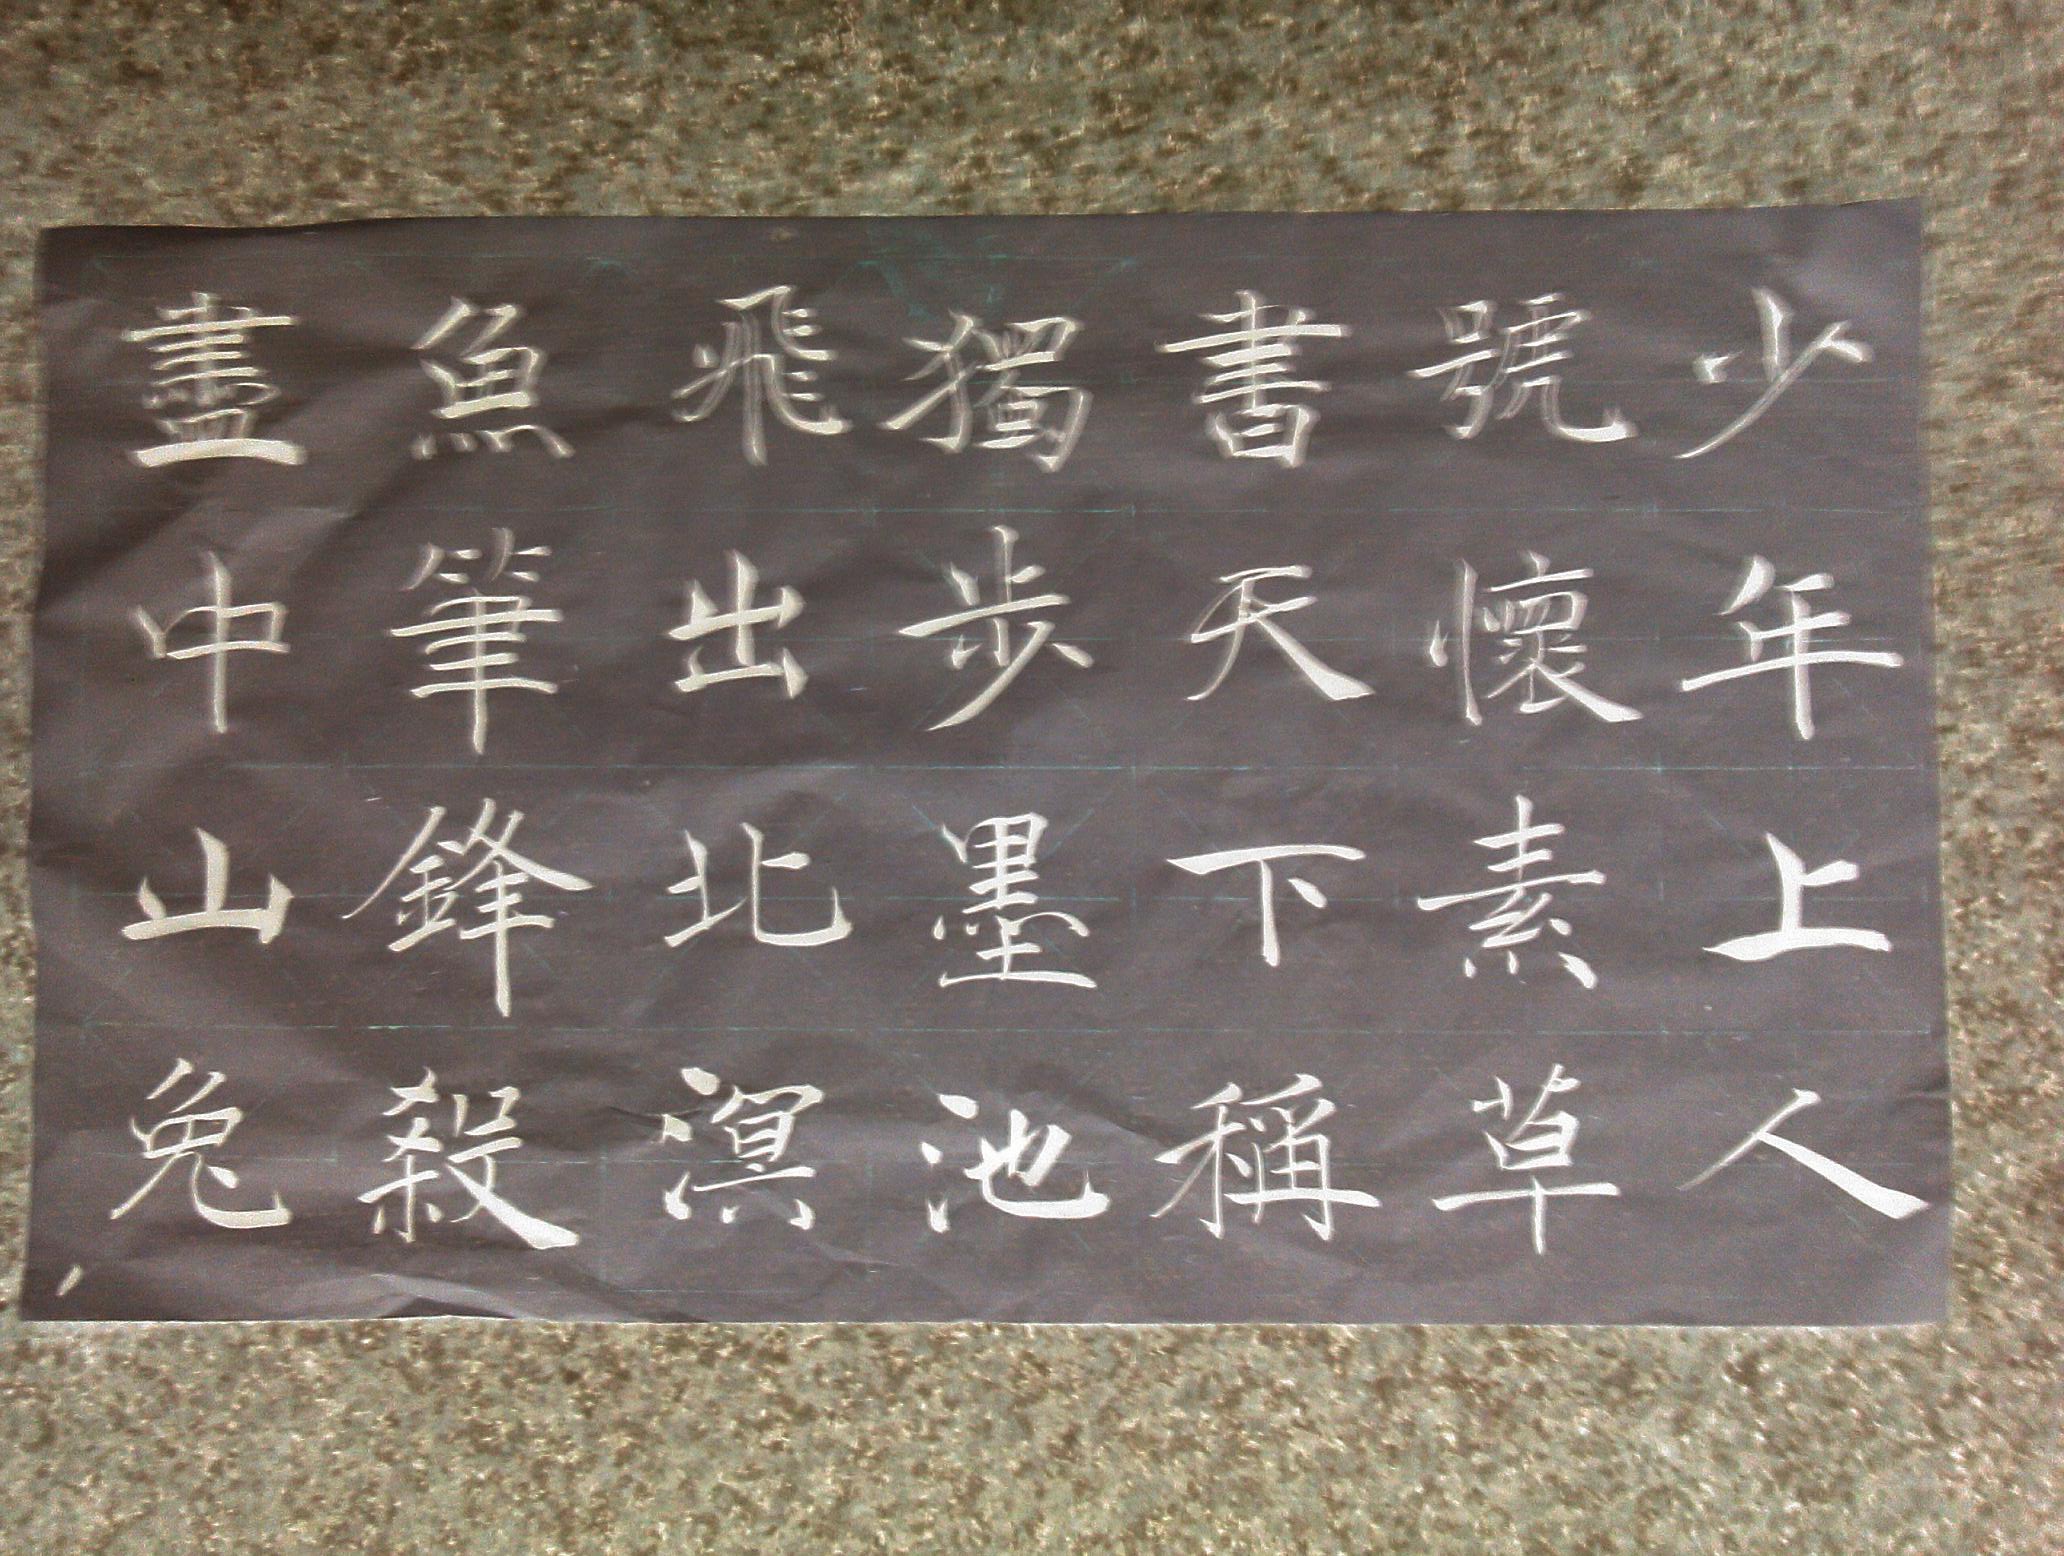 少年上人
號懷素草
書天下稱
獨步墨池
飛出北溟
魚筆鋒殺
盡中山兔